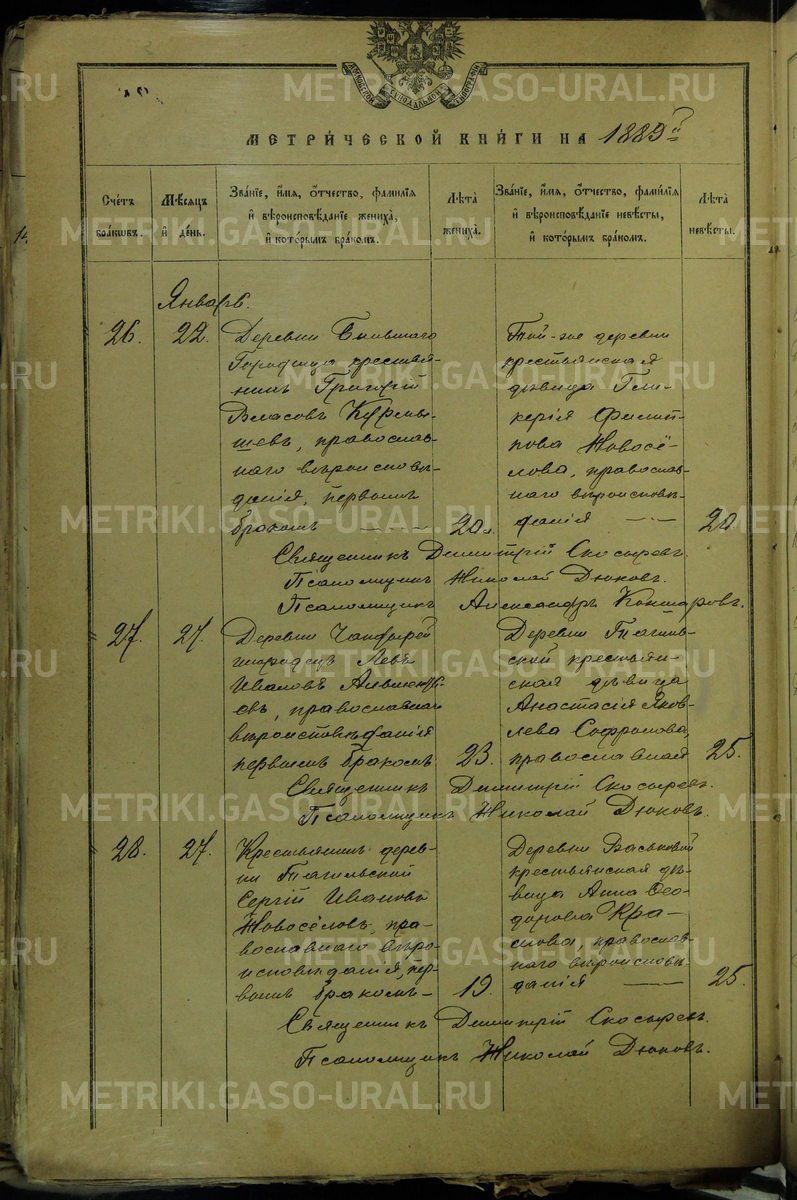 МОСКОВСКОЙ СѴНОДАЛЬНОЙ ТИПОГРАФІИ
МЕТРИ́ЧЕСКОЙ КНИ́ГИ НА 1889й
Сче́тъ бра́кѡвъ.
Мѣ́сяцъ и де́нь.
Зва́нїе, и́мя, ѻ́тчество, фами́лїя и҆ вѣроисповѣ́данїе жениха̀, и҆ кото́рымъ бра́комъ.
Лѣ́та жениха̀.
Зва́нїе, и́мя, ѻ́тчество, фами́лїя и҆ вѣроисповѣ́данїе невѣ́сты, и҆ кото́рымъ бра́комъ.
Лѣ́та невѣ́сты.
Январь.
26.
22.
Деревни Бывшаго
Городища крестья-
нинъ Григорій
Власовъ Курмы-
шевъ, православ-
наго вѣроисповѣ-
данія, первымъ
бракомъ
20.
Той-же деревни
крестьянская
дѣвица Гли-
керія Филип-
пова Новосё-
лова, православ-
наго вѣроисповѣ-
данія
20.
Священникъ Димитрій Скосыревъ.
Псаломщикъ Николай Дюковъ.
Псаломщикъ Александръ
27.
27.
Деревни
инородецъ Левъ
Ивановъ
евъ, православнаго
вѣроисповѣданія
первымъ бракомъ
23.
Деревни Тагиль-
ской крестьян-
ская дѣвица
Анастасія Яков-
лева Софронова,
православная
25.
Священникъ Димитрій Скосыревъ.
Псаломщикъ Николай Дюковъ.
28.
27.
Крестьянинъ дерев-
ни Тагильской
Сергій Ивановъ
Новосёловъ, пра-
вославнаго вѣро-
исповѣданія, пер-
вымъ бракомъ
19.
Деревни Васьковой
крестьянская дѣ-
вица Анна Ѳео-
дорова Кра-
снова, православ-
наго вѣроисповѣ-
данія
25.
Священникъ Димитрій Скосыревъ.
Псаломщикъ Николай Дюковъ.
METRIKI.GASO-URAL.RU